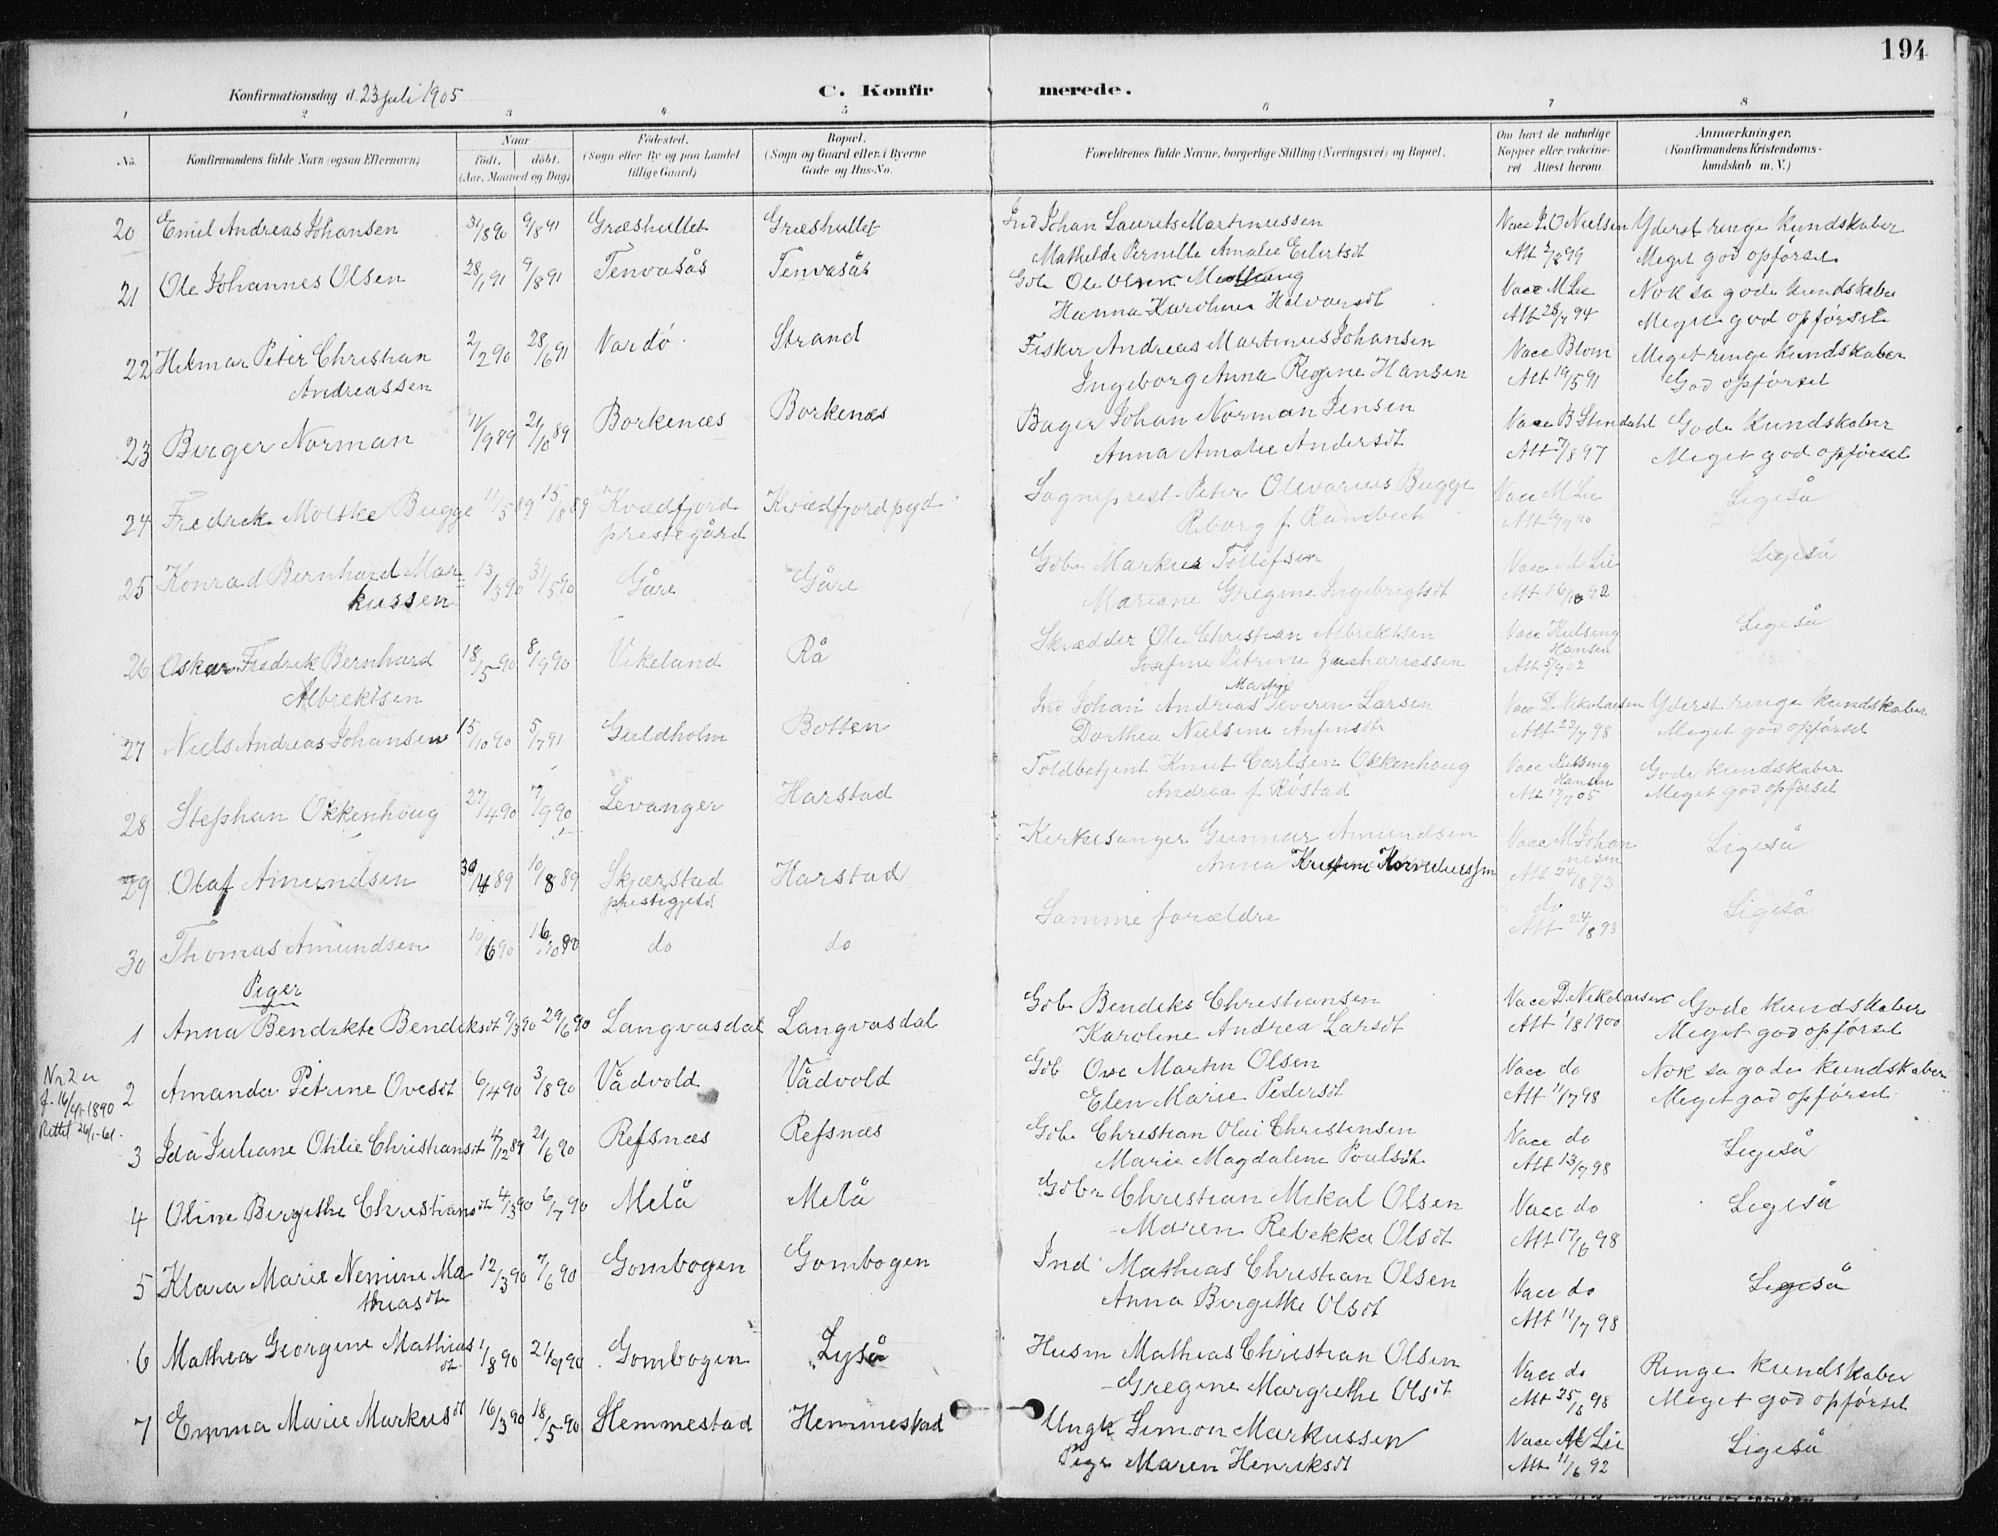 194
Konfirmationsdag d. 23 juli 1905
C. Konfirmerede.
1 2 3 4 5 6 7 8
No.
Konfirmandens fulde Navn (ogsaa Efternavn)
Naar
født. døbt.
(Aar, Maaned og Dag)
Fødested.
(Sogn eller By og paa Landet
tillige Gaard)
Bopæl.
(Sogn og Gaard eller i Byerne
Gade og Hus-No.
Forældrenes fulde Navne, borgerlige Stilling (Næringsvei) og Bopæl.
Om havt de naturlige
Kopper eller vakcine-
ret. Attest herom.
Anmærkninger.
(Konfirmandens Kristendoms-
kundskab m. V.)
20 Emil Andreas Johansen 31/8 90 9/8 91 Græshullet Græshullet Ind Johan Laurits Martinussen Vacc P. O Nielsen Yderst ringe kundskaber
Mathilde Pernille Amalie Eilertsdt Att 2/8 99 Meget god opførsel
21 Ole Johannes Olsen 28/1 91 9/8 91 Tenvasås Tenvasås Gbr Ole Olsen Vacc M Lie Nok så gode kundskaber
Hanna Karoline Halvorsdt Att 28/7 94 Meget god opførsel
22 Hilmar Peter Christian 2/2 90 28/6 91 Vardø Strand Fisker Andreas Martinus Johansen Vacc Blom Meget ringe kundskaber
Andreassen Ingeborg Anna Regine Hansen Att 19/5 91 God opførsel
23 Birger Norman 11/9 89 21/10 89 Borkenæs Borkenæs Bager Johan Norman Jensen Vacc B Stendahl Gode kundskaber
Anna Amalie Andersdt Att 7/8 97 Meget god opførsel
24 Fredrik Moltke Bugge 11/5 89 15/8 89 Kvædfjord Kvædfjord pgd Sogneprest Peter Olivarius Bugge Vacc M Lie Ligeså
prestegård Riborg f. Randbeck Att 90
25 Konrad Bernhard Mar 13/3 90 31/5 90 Gåre Gåre Gbr Markus Tollefsen Vacc M Lie Ligeså
kussen Mariane Gregine Ingebrigtsdt Att 16/10 92
26 Oskar Fredrik Bernhard 18/5 90 8/9 90 Vikeland Rå Skrædder Ole Christian Albrektsen Vacc Kulseng Hansen Ligeså
Albrektsen Josefine Petrine Zachariassen Att 5/9 02
27 Niels Andreas Johansen 15/10 90 5/7 91 Guldholm Botten Ind Johan Andreas Martin Severin Larsen Vacc D. Nikolaisen Yderst ringe kundskaber
Dorthea Nielsine Anfinsdt Att 22/7 98 Meget god opførsel
28 Stephan Okkenhoug 27/4 90 7/9 90 Levanger Harstad Toldbetjent Knut Carlsen Okkenhoug Vacc Kulseng Hansen Gode kundskaber
Andrea f. Røstad Att 17/7 05 Meget god opførsel
29 Olaf Amundsen 30/4 89 10/8 89 Skjærstad Harstad Kirkesanger Gunnar Amundsen Vacc M Johannesen Ligeså
prestegjeld Anna Kristine Korneliussen Att 24/8 93
30 Thomas Amundsen 10/6 90 16/10 90 do do Samme forældre do Ligeså
Att 24/8 93
Piger
1 Anna Bendikte Bendiksdt 9/3 90 29/6 90 Langvasdal Langvasdal Gbr Bendiks Christiansen Vacc D. Nikolaisen Gode kundskaber
Karoline Andrea Larsdt Att 1/8 1900 Meget god opførsel
Nr 2 er
f. 16/4-1890
Rettet 26/1-61.
2 Amanda Petrine Ovesdt 6/4 90 3/8 90 Vådvold Vådvold Gbr Ove Martin Olsen Vacc do Nok så gode kundskaber
Elen Marie Pedersdt Att 11/7 98 Meget god opførsel
3 Ida Juliane Otilie Christiansdt 4/12 89 21/6 90 Refsnæs Refsnæs Gbr Christian Olai Christensen Vacc do Ligeså
Marie Magdalene Poulsdt Att 13/7 98
4 Oline Birgithe Christiansdt 4/3 90 6/7 90 Melå Melå Gbr Christian Mikal Olsen Vacc do Ligeså
Maren Rebekka Olsdt Att 17/6 98
5 Klara Marie Nemine Ma 12/3 90 7/6 90 Gombogen Gombogen Ind Mathias Christian Olsen Vacc do Ligeså
thiasdt Anna Birgithe Olsdt Att 11/7 98
6 Mathea Georgine Mathiasdt 1/8 90 21/9 90 Gombogen Lyså Husm Mathias Christian Olsen Vacc do Ringe kundskaber
Gregine Margrethe Olsdt Att 25/6 98 Meget god opførsel
7 Emma Marie Markusdt 16/3 90 18/5 90 Hemmestad Hemmestad Ungk Simon Markussen Vacc M Lie Ligeså
Pige Maren Henriksdt Att 11/6 92